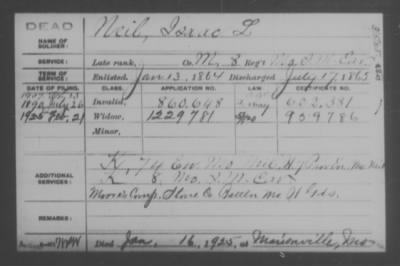 DEAD
NAME OF SOLDIER:
Neil, Isaac L
SERVICE:
Late rank, Co. M, 8 Reg't Mo. S. M. Cav.
TERM OF SERVICE:
Enlisted Jan 13, 1864 Discharged July 17, 1865
DATE OF FILING. CLASS. APPLICATION NO. LAW. CERTIFICATE NO.
1890 July 26 Invalid, 860,648 602,381
1925 Feb. 21 Widow, 1229781 959786
Minor,
ADDITIONAL SERVICES:
K, 74 Mo
K 8, Mo. S. M. Cav
Moore's Comp. Stone Co Mo H Gds.
REMARKS:
Died Jan. 16, 1925, at Marionville, Mo